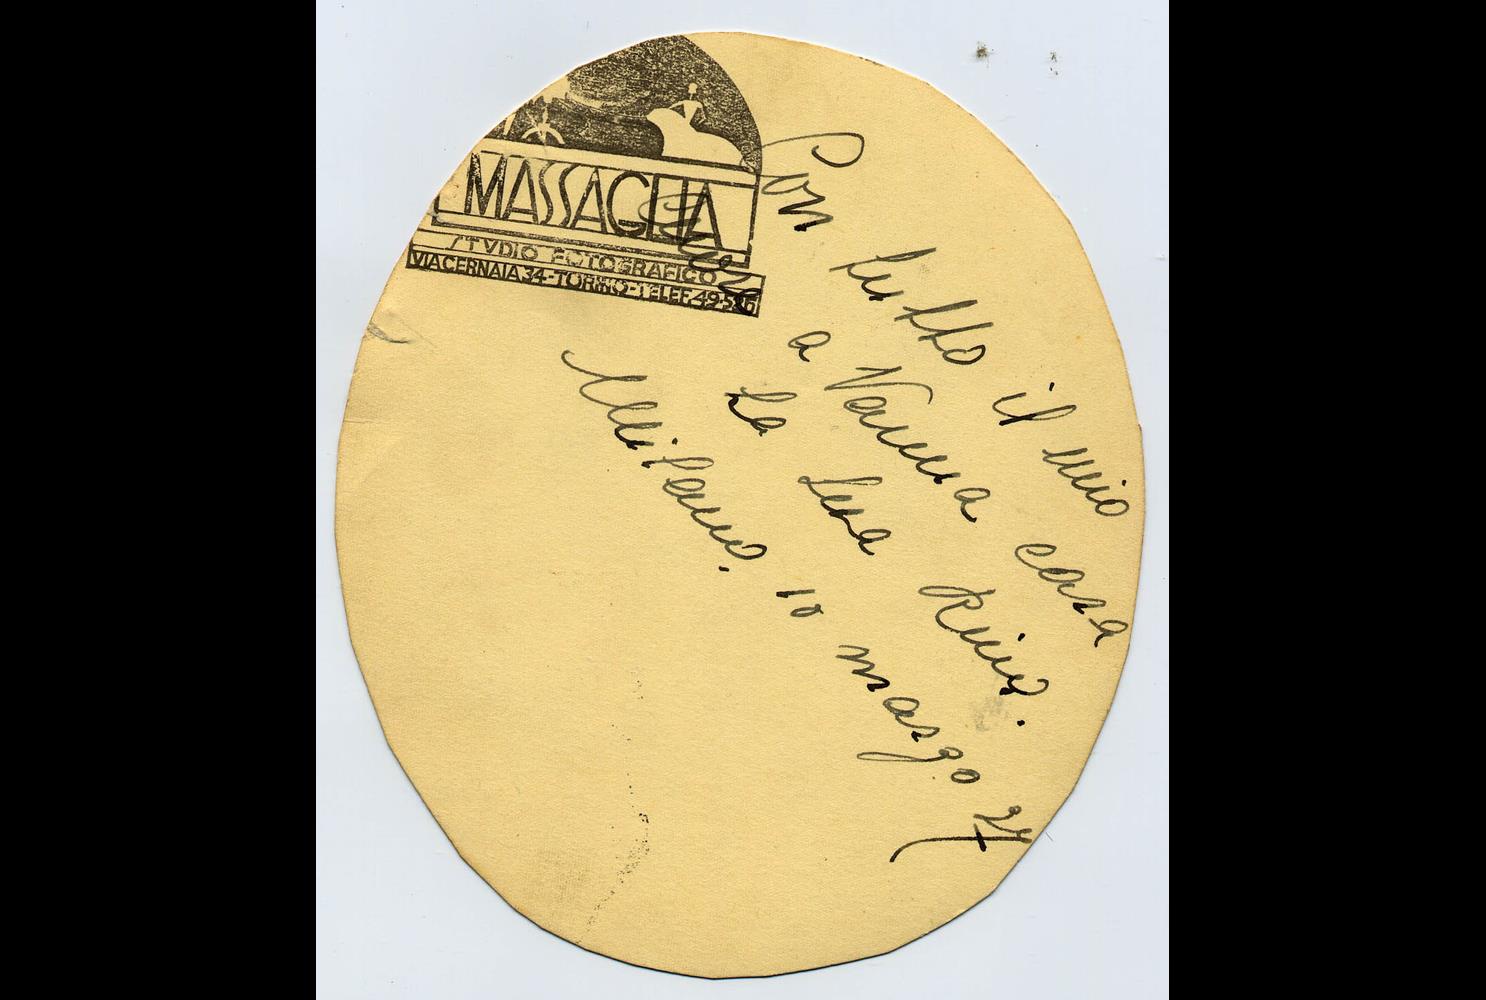 MASSAGLIA
STVDIO FOTOGRAFICO
VIA CERNAIA 34-TORINO-TELEF. 49-526
Con tutto il mio
cuore a Vanna cara
La sua
Milano. 10 marzo 37